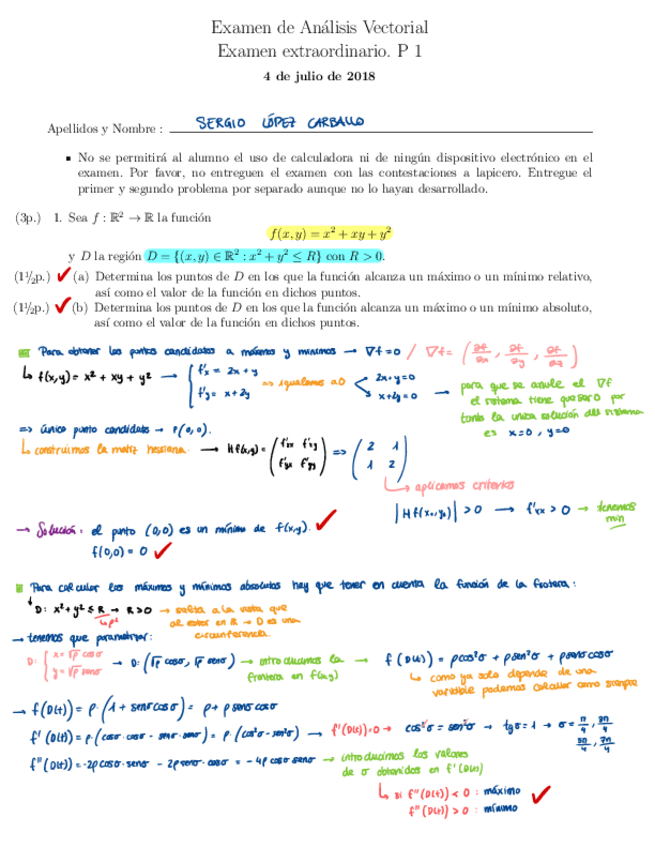 Examen de Análisis Vectorial
Examen extraordinario. P 1
4 de julio de 2018
Apellidos y Nombre : SERGIO LÓPEZ CARBALLO
▪ No se permitirá al alumno el uso de calculadora ni de ningún dispositivo electrónico en el
examen. Por favor, no entreguen el examen con las contestaciones a lapicero. Entregue el
primer y segundo problema por separado aunque no lo hayan desarrollado.
(3p.) 1. Sea f : ℝ² → ℝ la función
f(x, y) = x² + xy + y²
y D la región D = {(x, y) ∈ ℝ² : x² + y² ≤ R} con R > 0.
(1½p.) ✓ (a) Determina los puntos de D en los que la función alcanza un máximo o un mínimo relativo,
así como el valor de la función en dichos puntos.
(1½p.) ✓ (b) Determina los puntos de D en los que la función alcanza un máximo o un mínimo absoluto,
así como el valor de la función en dichos puntos.
Para obtener los puntos candidatos a máximos y mínimos → ∇f=0 / ∇f= (∂f/∂x, ∂f/∂y, ∂f/∂z)
↳ f(x,y)= x² + xy + y² → { f'x = 2x + y
f'y = x + 2y ⇒ igualamos a 0 2x+y=0
x+2y=0 → para que se anule el ∇f
el sistema tiene que ser 0 por
tanto la unica solución del sistema
es x=0 , y=0
⇒ único punto candidato → P(0,0).
↳ construimos la matriz hessiana: → Hf(x,y) = (f'xx f'xy
f'yx f'yy) ⇒ (2 1
1 2)
↳ aplicamos criterios
|Hf(x₀,y₀)| > 0 → f'xx > 0 → tenemos
min
→ Solución: el punto (0,0) es un mínimo de f(x,y). ✓
f(0,0) = 0 ✓
Para calcular los máximos y mínimos absolutos hay que tener en cuenta la función de la frontera:
D: x²+y² ≤ R → R>0 → salta a la vista que
↳ρ² al estar en R → D es una
circunferencia.
→ tenemos que parametrizar:
D: { x = √ρ cosσ
y = √ρ senσ → D: (√ρ cosσ, √ρ senσ) → introducimos la
frontera en f(x,y) → f (D(t)) = ρcos²σ + ρsen²σ + ρsenσ cosσ
↳ como ya solo depende de una
variable podemos calcular como siempre
→ f(D(t)) = ρ·(1 + senσ cosσ) = ρ + ρ senσ cosσ
f'(D(t)) = ρ·(cosσ · cosσ - senσ · senσ) = ρ·(cos²σ - sen²σ) → f'(D(t))=0 → cos²σ = sen²σ → tgσ = 1 → σ = π/4, 3π/4
5π/4, 7π/4
f''(D(t)) = -2ρ cosσ·senσ - 2ρ senσ·cosσ = -4ρ cosσ senσ → introducimos los valores
de σ obtenidos en f'(D(t))
↳ si f''(D(t)) < 0 : máximo ✓
f''(D(t)) > 0 : mínimo